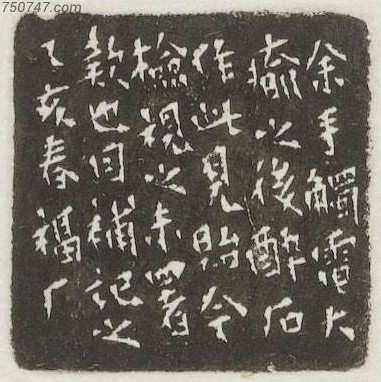 750747.com
余手觸電大
瘉之後醉石
作此見貽今
檢視之未署
欵也因補記之
乙亥春福厂